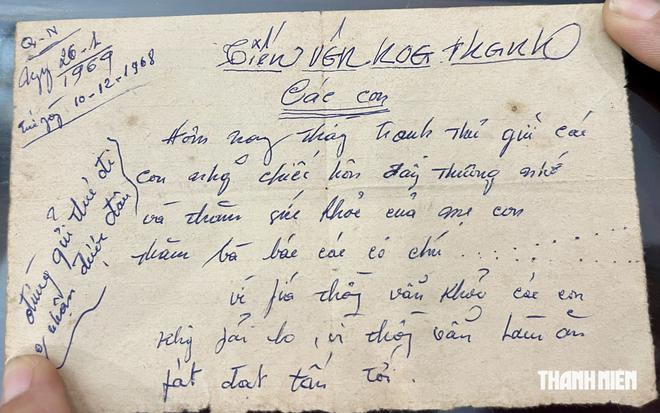 Q-N
Ngày 26-1
1969
10-12-1968
Tiến Vấn Hoè Thanh
Các con
Hôm nay thầy tranh thủ gửi các
con nhỏ chiếc hôn đầy thương nhớ
và thăm sức khoẻ của mẹ con
thăm bà bác các cô chú..........
vì giờ thầy vẫn khoẻ các con
khg phải lo, vì thầy vẫn làm ăn
phát đạt tấn tới.
đừng gửi thư đi
nhận được đâu
THANH NIÊN